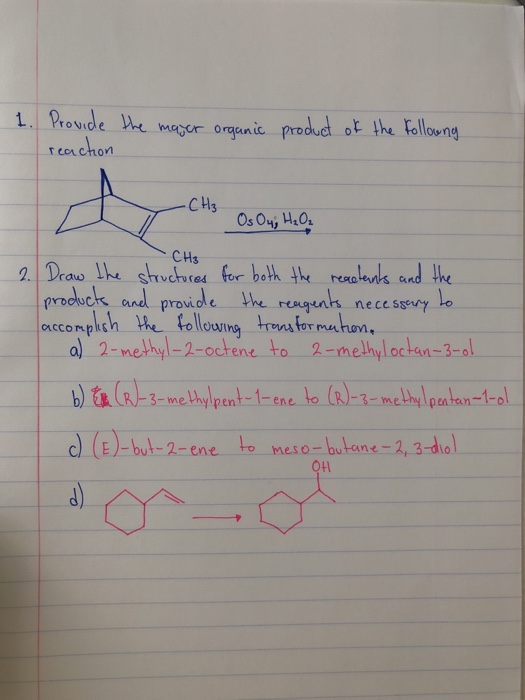 1. Provide the major organic product of the following
reaction
CH3
OsO4; H2O2
CH3
2. Draw the structures for both the reactants and the
products and provide the reagents necessary to
accomplish the following transformation.
a) 2-methyl-2-octene to 2-methyloctan-3-ol
b) (R)-3-methylpent-1-ene to (R)-3-methylpentan-1-ol
c) (E)-but-2-ene to meso-butane-2,3-diol
OH
d)